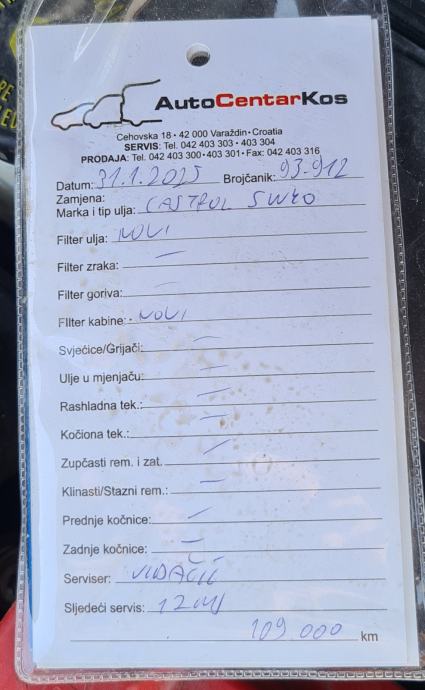 AutoCentarKos
Cehovska 18 • 42 000 Varaždin • Croatia
SERVIS: Tel. 042 403 303 • 403 304
PRODAJA: Tel. 042 403 300 • 403 301 • Fax: 042 403 316
Datum: 31.1.2025 Brojčanik: 93.912
Zamjena:
Marka i tip ulja: CASTROL 5W40
Filter ulja: NOVI
Filter zraka: —
Filter goriva: —
FIlter kabine: - NOVI
Svjećice/Grijači: —
Ulje u mjenjaču: —
Rashladna tek.: —
Kočiona tek.: —
Zupčasti rem. i zat. —
Klinasti/Stazni rem.: —
Prednje kočnice: —
Zadnje kočnice: —
Serviser:
Sljedeći servis: 12 MJ
109 000 km